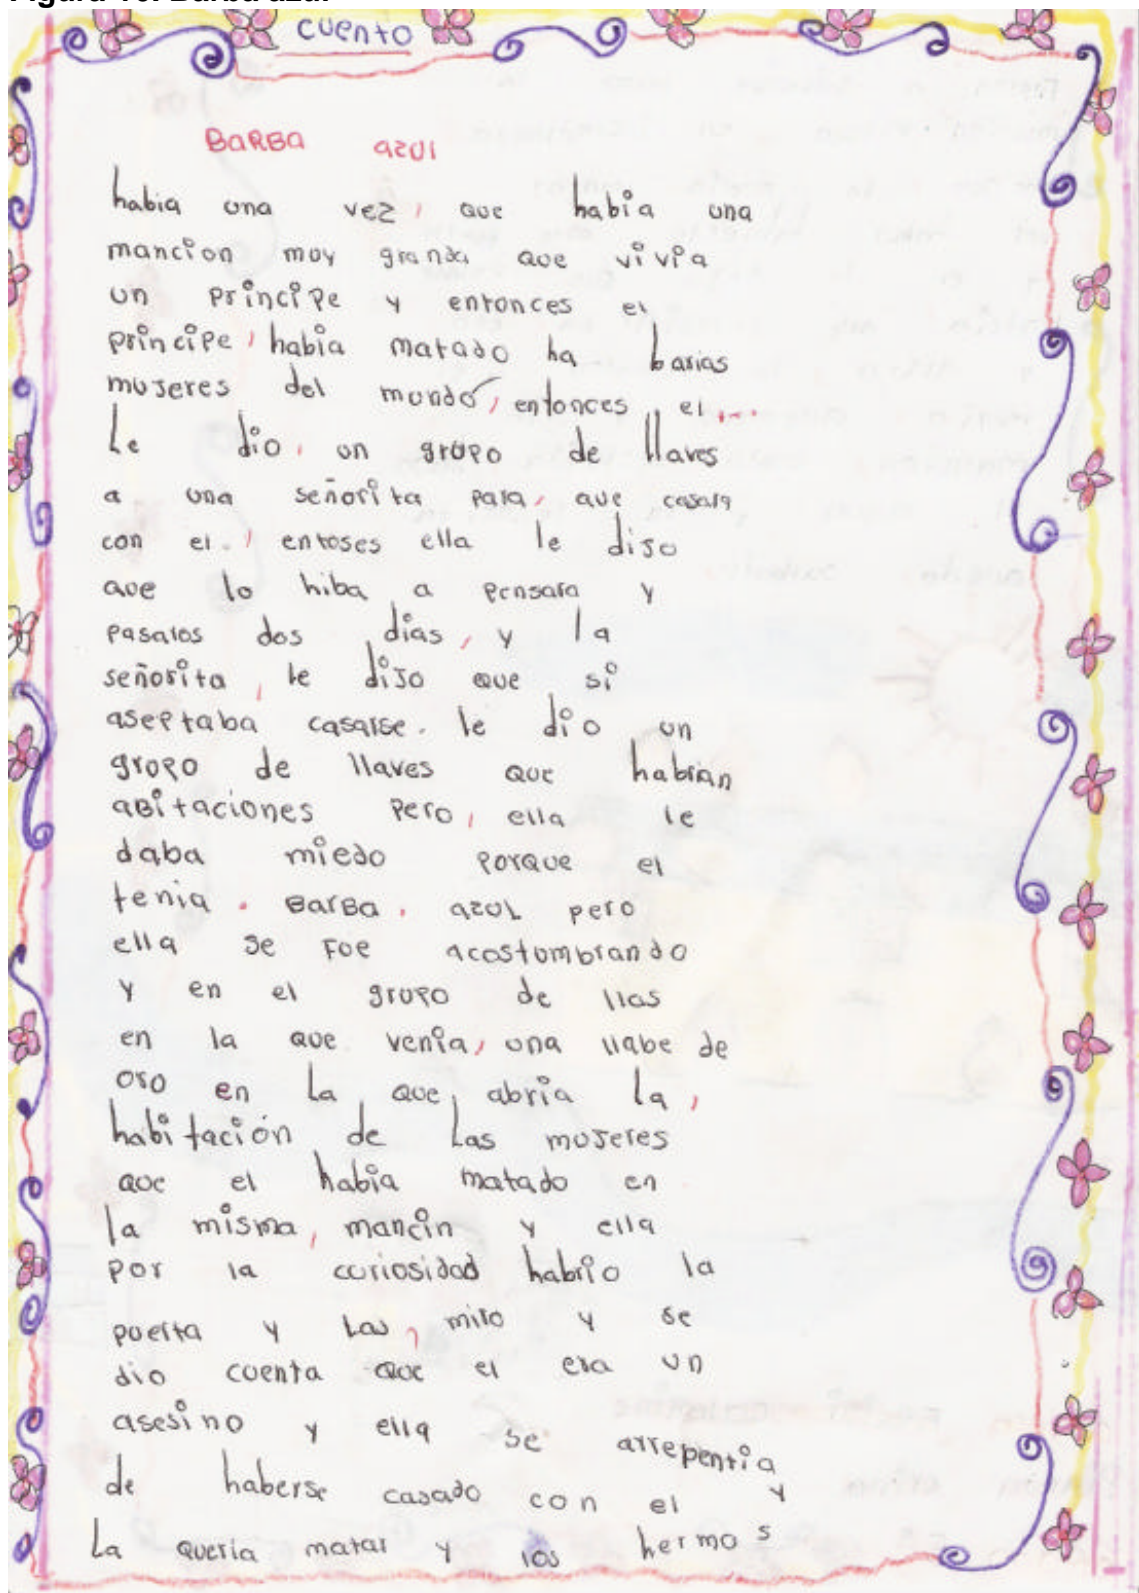 Figura 10. Barba azul
cuento
BARBA azul
habia una vez, que había una
mancion muy granda que vivia
un principe y entonces el
principe, habia matado ha barias
mujeres del mundo, entonces, el....
Le dio, un grupo de llaves
a una señorita para, que casara
con el., entoses ella le dijo
que lo hiba a pensara y
pasaros dos días, y la
señorita, le dijo que si
aseptaba casarse. le dio un
grupo de llaves que habrian
aBitaciones pero, ella le
daba miedo porque el
tenia. BarBa. azul pero
ella se Fue acostumbrando
y en el grupo de llas
en la que venia, una llabe de
oro en la que, abria la,
habitación de Las mujeres
que el había matado en
la misma, mancin y ella
por la curiosidad habrio la
puerta y Las, miro y se
dio cuenta que el era un
asesino y ella se arrepentia
de haberse casado con el y
La queria matar y los hermos